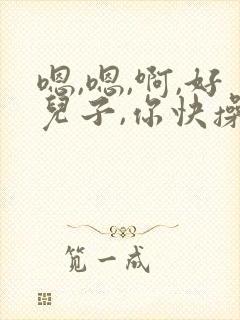 嗯,嗯,啊,好
兒子,你快操
笕一成